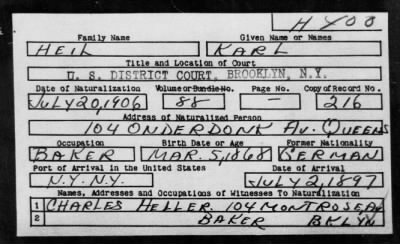 H 400
Family Name Given Name or Names
HEIL KARL
Title and Location of Court
U. S. DISTRICT COURT, BROOKLYN, N.Y.
Date of Naturalization Volume or Bundle No. Page No. Copy of Record No.
JULY 20, 1906 88 — 216
Address of Naturalized Person
104 ONDERDONK AV. QUEENS
Occupation Birth Date or Age Former Nationality
BAKER MAR. 5, 1868 GERMAN
Port of Arrival in the United States Date of Arrival
N.Y. N.Y. JULY 2, 1897
Names, Addresses and Occupations of Witnesses To Naturalization
1 CHARLES HELLER 104 MONTROSE AV
2 BAKER BKLYN